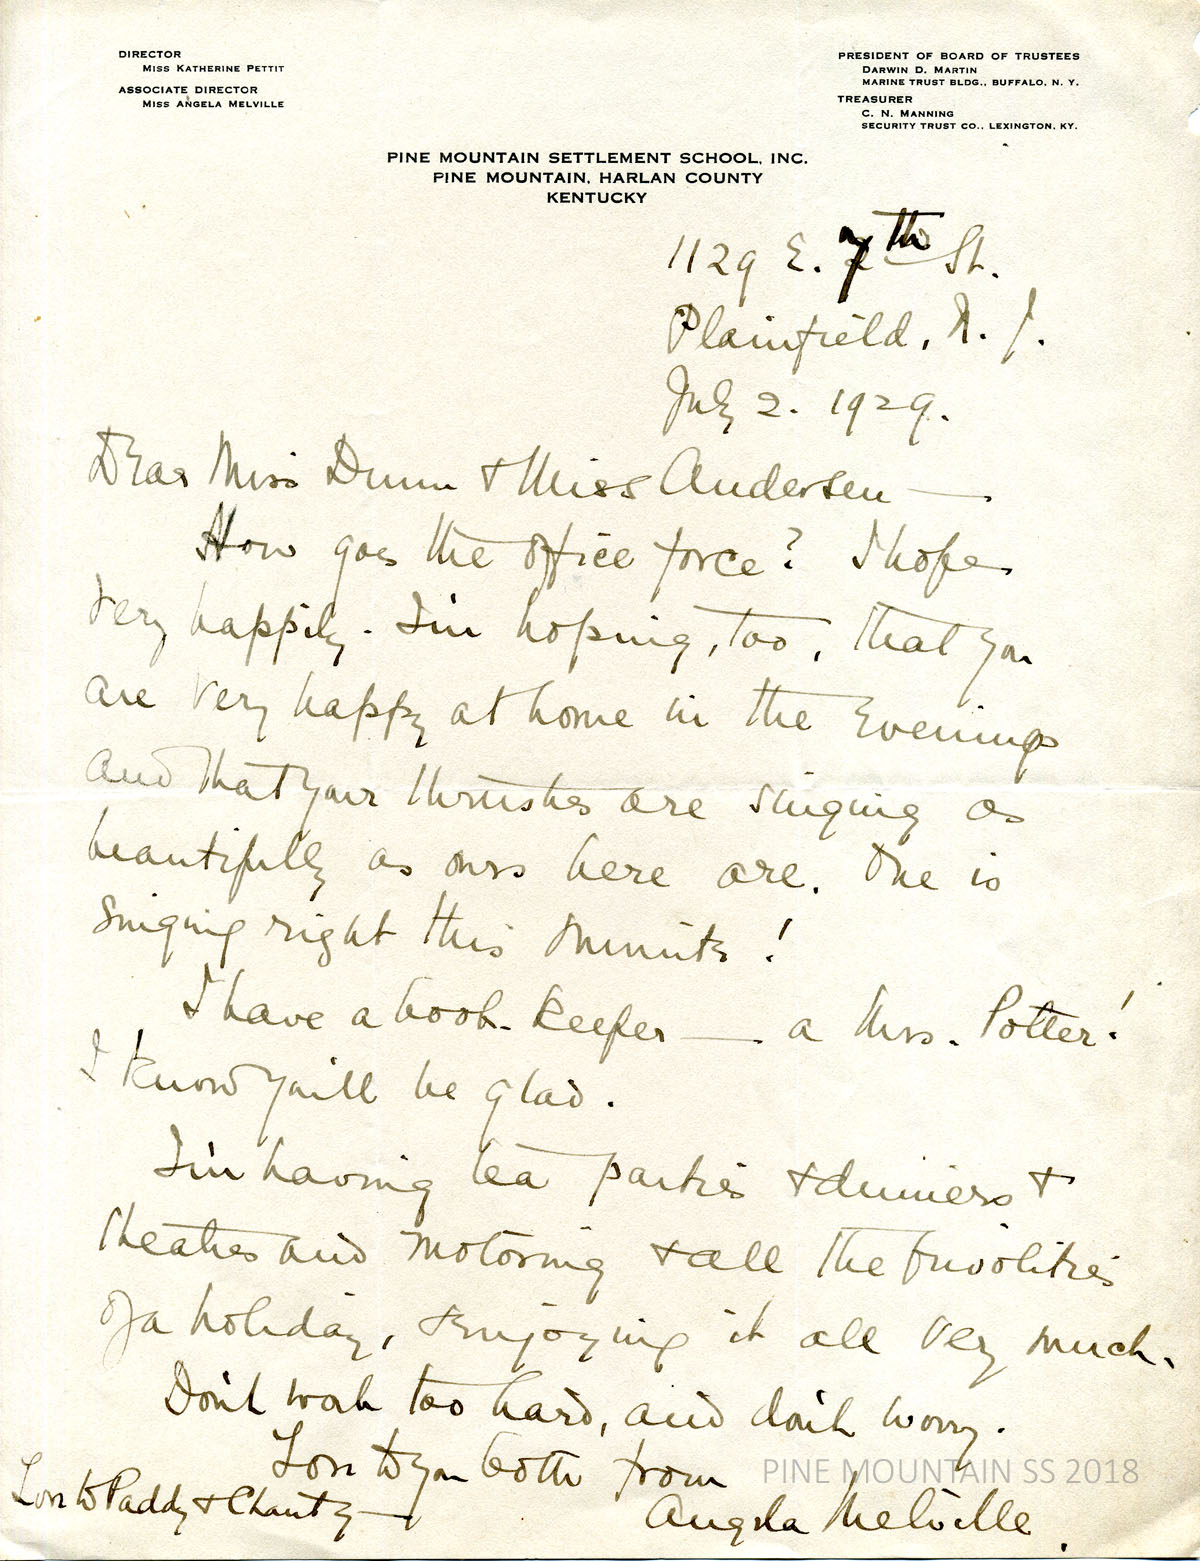 DIRECTOR
MISS KATHERINE PETTIT
ASSOCIATE DIRECTOR
MISS ANGELA MELVILLE
PRESIDENT OF BOARD OF TRUSTEES
DARWIN D. MARTIN
MARINE TRUST BLDG., BUFFALO, N. Y.
TREASURER
C. N. MANNING
SECURITY TRUST CO., LEXINGTON, KY.
PINE MOUNTAIN SETTLEMENT SCHOOL, INC.
PINE MOUNTAIN, HARLAN COUNTY
KENTUCKY
1129 E. 7th St.
Plainfield, N. J.
July 2. 1929.
Dear Miss Dunn & Miss Andersen —
How goes the office force? I hope
very happily. I'm hoping, too, that you
are very happy at home in the evenings
and that your thrushes are singing as
beautifully as ours here are. One is
singing right this minute!
I have a book-keeper — a Mrs. Potter!
I know you'll be glad.
I'm having tea parties & dinners &
theatres and motoring & all the frivolities
of a holiday, & enjoying it all very much.
Don't work too hard, and don't worry.
Love to you both from
Angela Melville.
Love to Paddy & Chanty —
PINE MOUNTAIN SS 2018